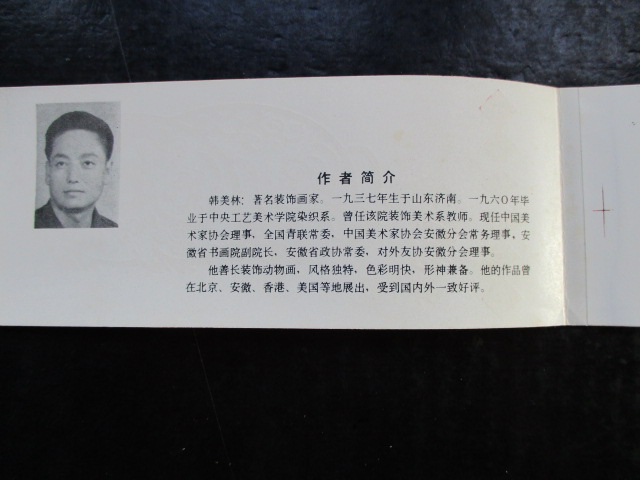 作者简介
韩美林：著名装饰画家。一九三七年生于山东济南。一九六〇年毕
业于中央工艺美术学院染织系。曾任该院装饰美术系教师。现任中国美
术家协会理事，全国青联常委，中国美术家协会安徽分会常务理事，安
徽省书画院副院长，安徽省政协常委，对外友协安徽分会理事。
他善长装饰动物画，风格独特，色彩明快，形神兼备。他的作品曾
在北京、安徽、香港、美国等地展出，受到国内外一致好评。